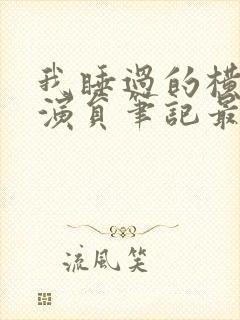 我睡過的橫
演員筆記最
流風笑